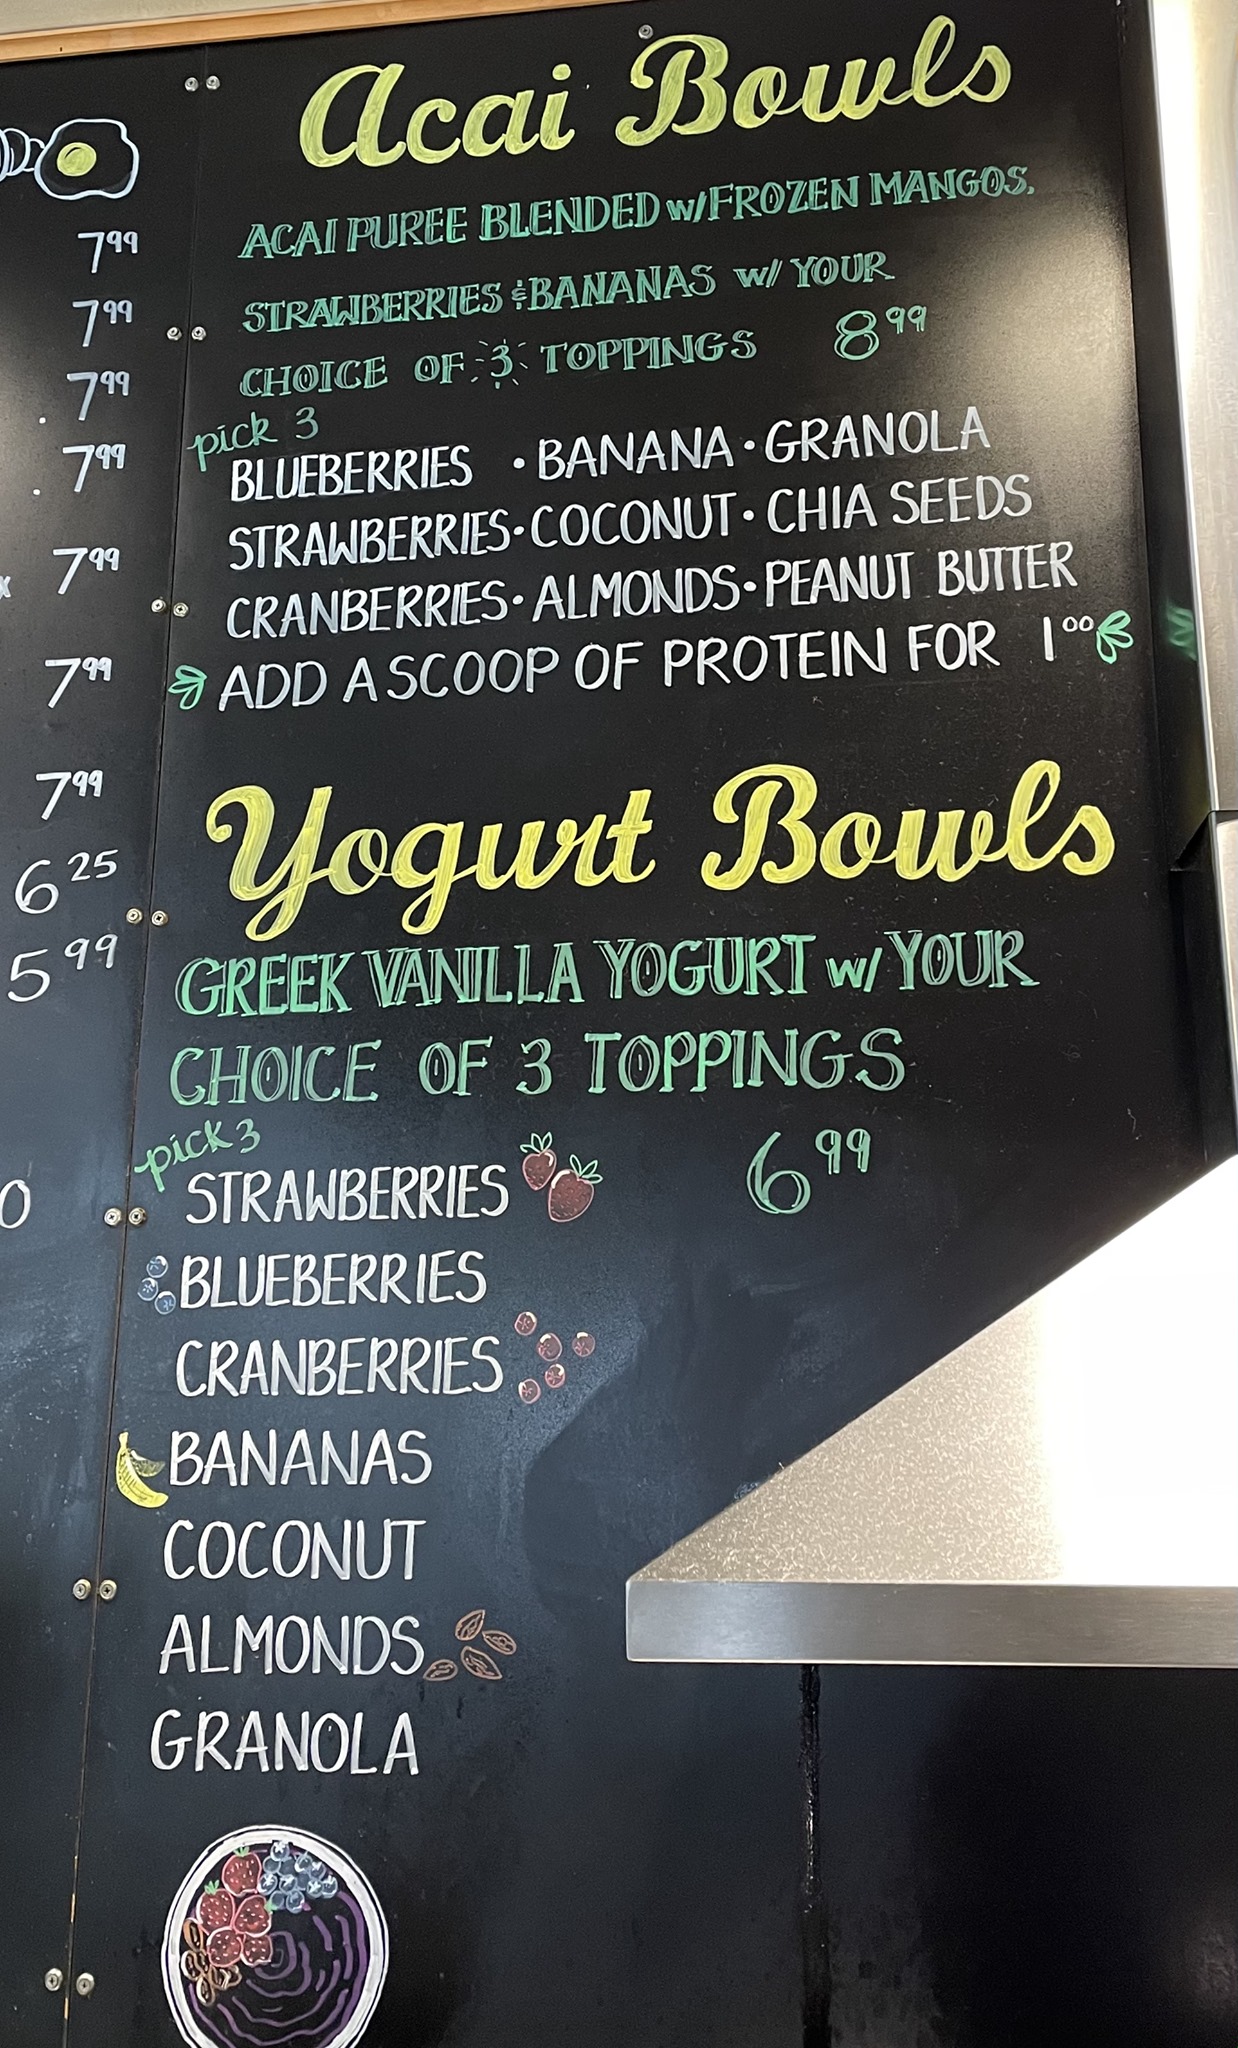 Acai Bowls
ACAI PUREE BLENDED w/FROZEN MANGOS.
STRAWBERRIES & BANANAS w/ YOUR
CHOICE OF 3 TOPPINGS 8.99
pick 3
BLUEBERRIES • BANANA • GRANOLA
STRAWBERRIES • COCONUT • CHIA SEEDS
CRANBERRIES • ALMONDS • PEANUT BUTTER
ADD A SCOOP OF PROTEIN FOR 1.00
Yogurt Bowls
GREEK VANILLA YOGURT w/ YOUR
CHOICE OF 3 TOPPINGS
6.99
pick 3
STRAWBERRIES
BLUEBERRIES
CRANBERRIES
BANANAS
COCONUT
ALMONDS
GRANOLA
7.99
7.99
7.99
7.99
7.99
7.99
7.99
6.25
5.99
0